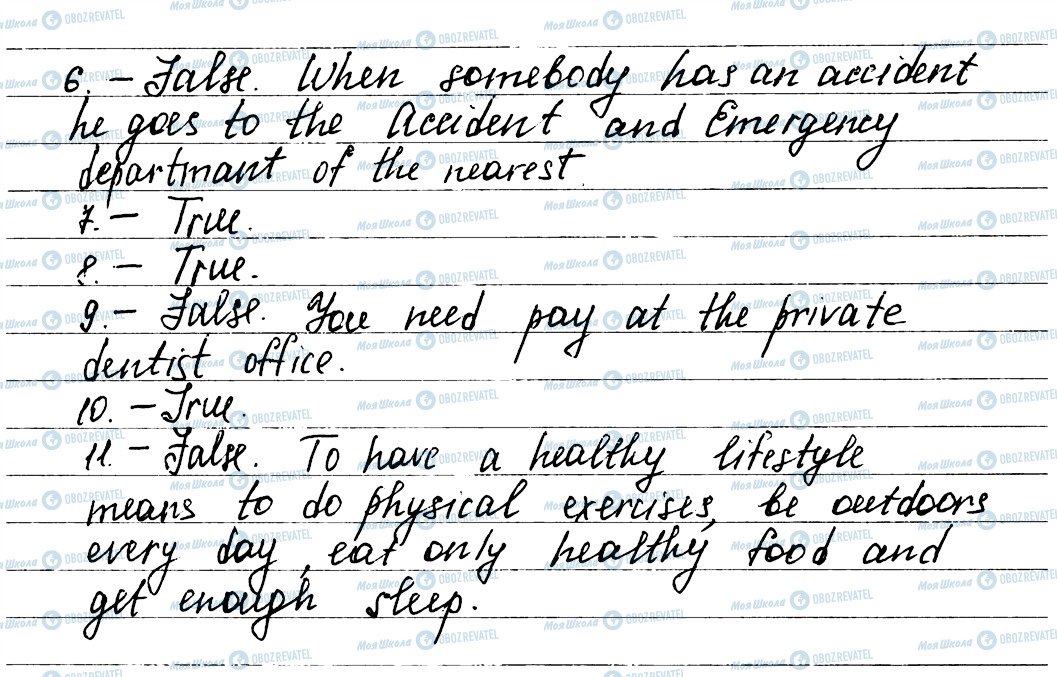 6. – False. When somebody has an accident
he goes to the Accident and Emergency
departmant of the nearest
7. – True.
8. – True.
9. – False. You need pay at the private
dentist office.
10. – True.
11. – False. To have a healthy lifestyle
means to do physical exercises, be outdoors
every day, eat only healthy food and
get enough sleep.